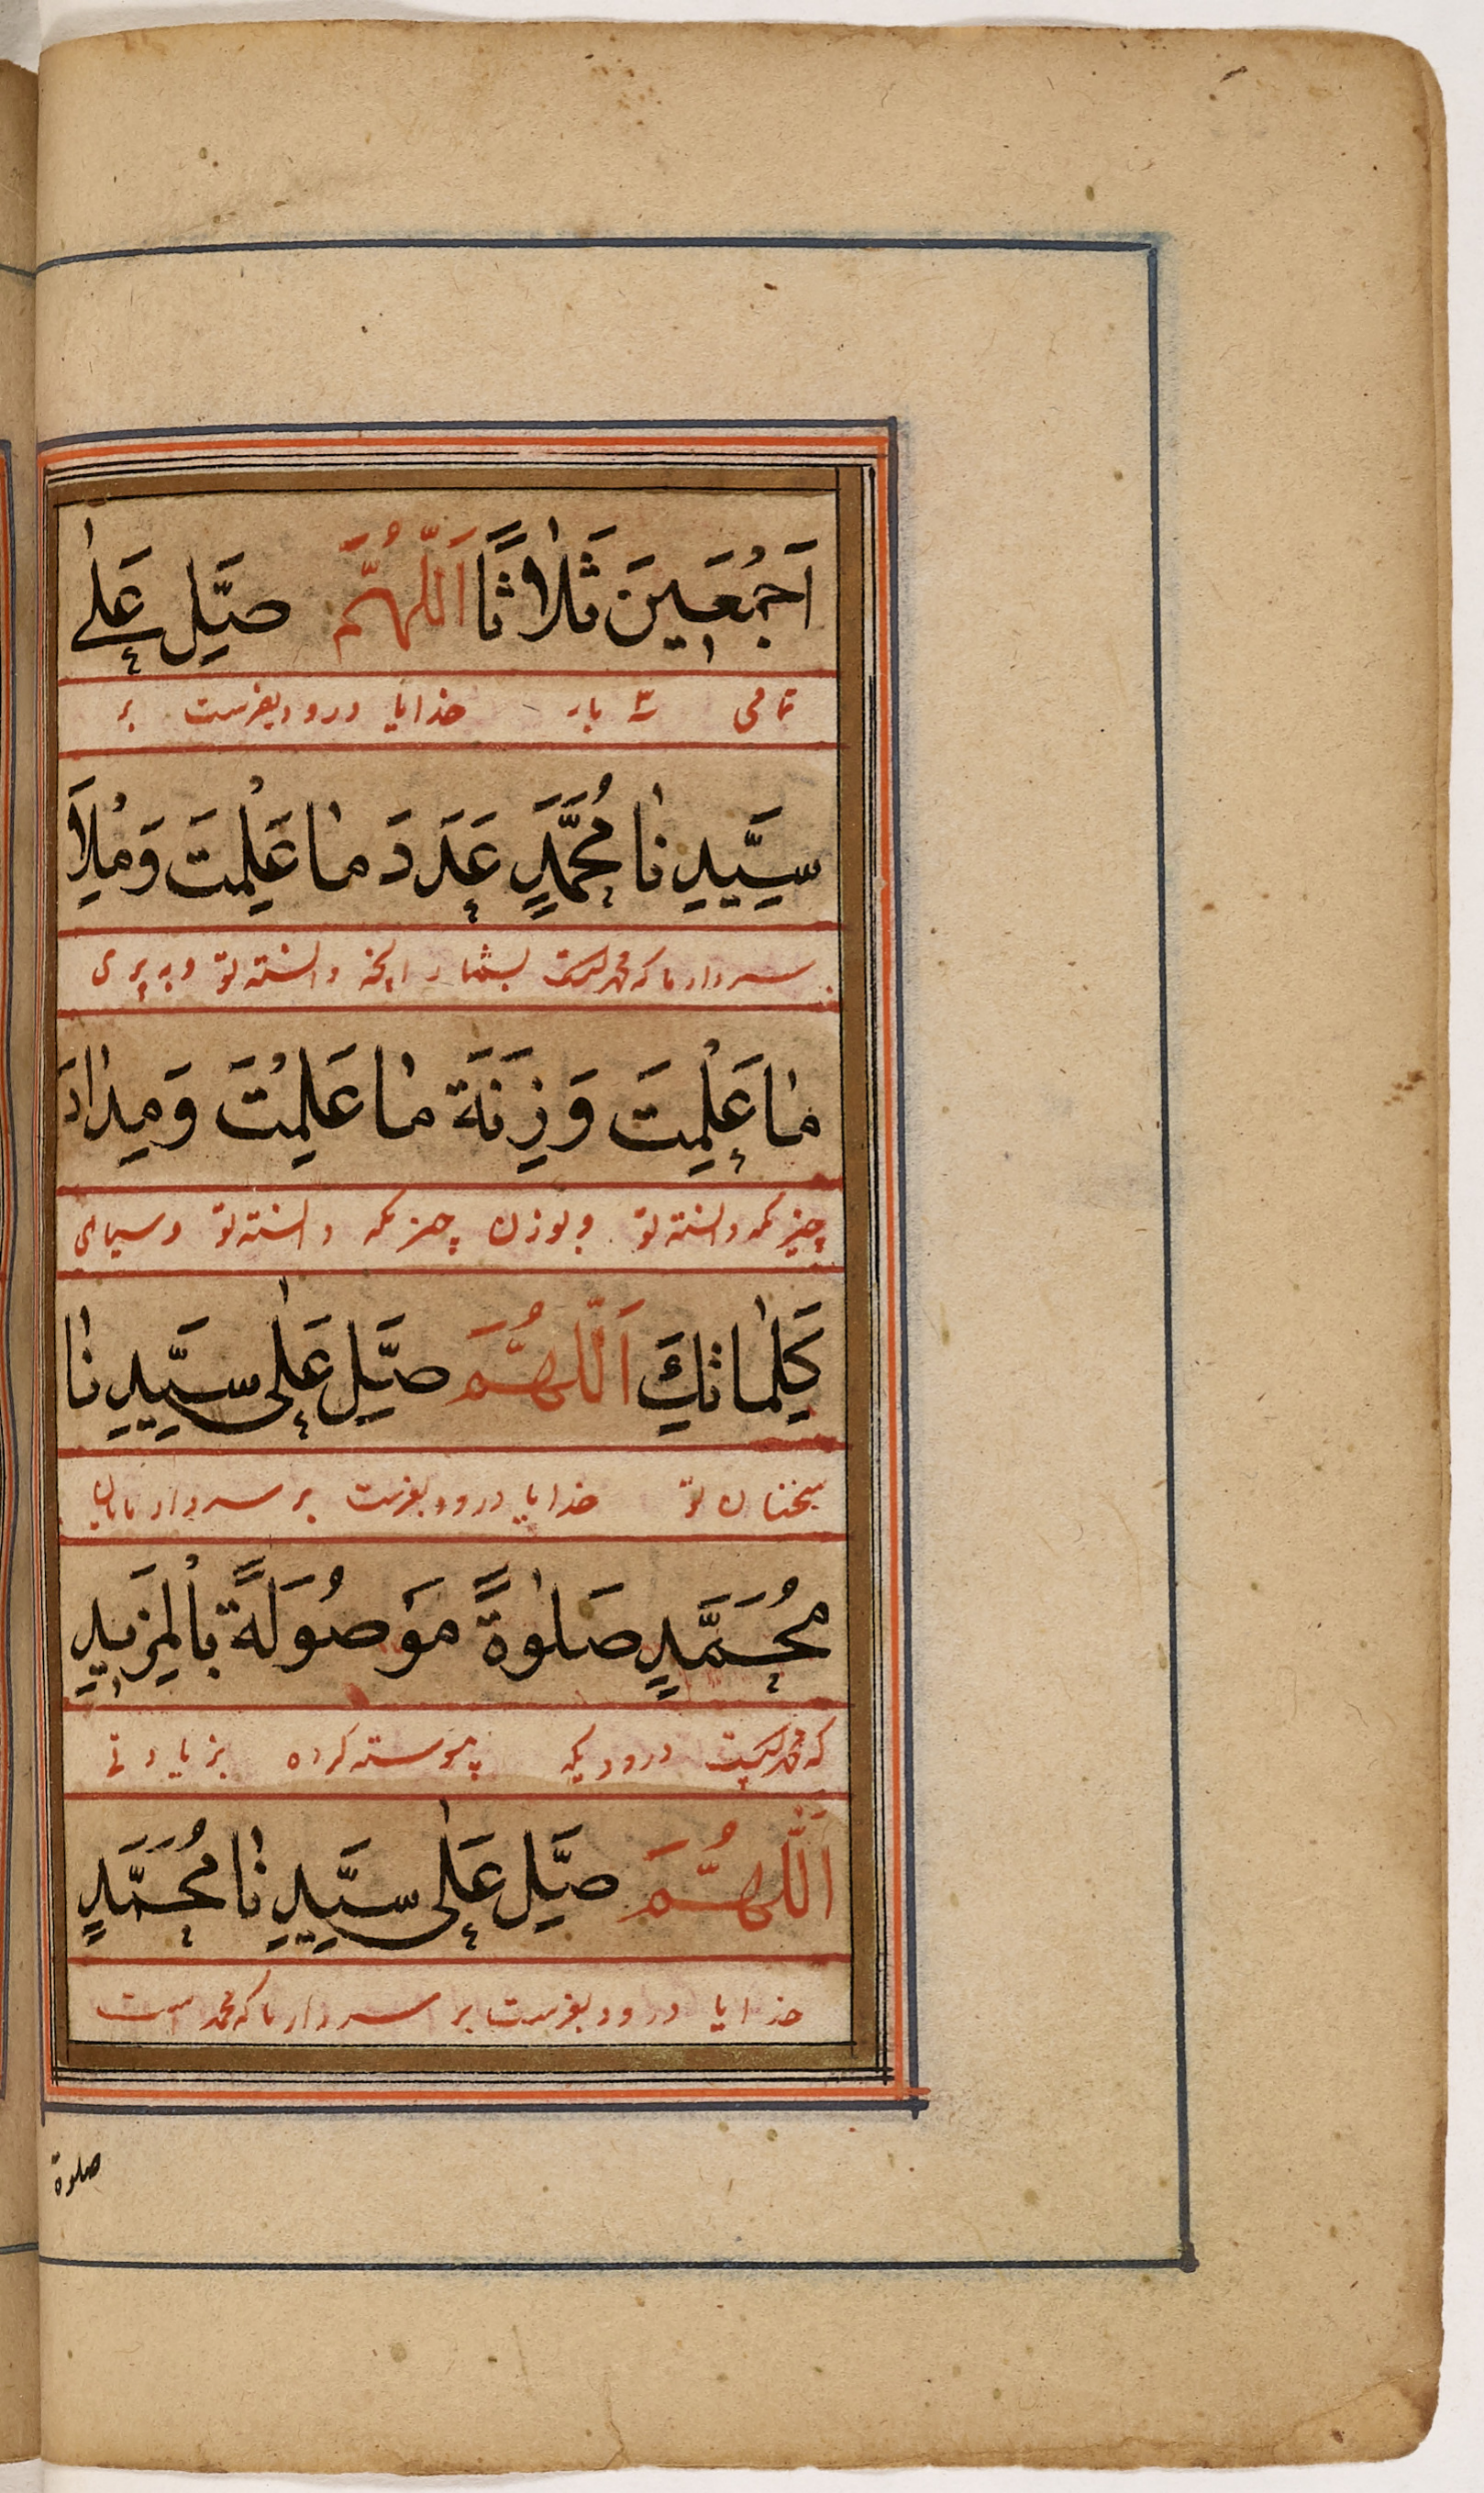 اَجْمَعِينَ ثَلٰاثًا اَللّٰهُمَّ صَلِّ عَلٰى
تمامی سه بار خدایا درود بفرست بر
سَيِّدِنٰا مُحَمَّدٍ عَدَدَ مٰا عَلِمْتَ وَمِلْاَ
سردار ما که محمد است بشمار آنچه دانسته تو و به پری
مٰا عَلِمْتَ وَزِنَةَ مٰا عَلِمْتَ وَمِدٰادَ
چیزیکه دانسته تو و بوزن چیزیکه دانسته تو و سیاهی
كَلِمٰاتِكَ اَللّٰهُمَّ صَلِّ عَلٰى سَيِّدِنٰا
سخنان تو خدایا درود بفرست بر سردار مایان
مُحَمَّدٍ صَلٰوةً مَوْصُولَةً بِالْمَزِيدِ
که محمد است درودیکه پیوسته کرده بزیادتی
اَللّٰهُمَّ صَلِّ عَلٰى سَيِّدِنٰا مُحَمَّدٍ
خدایا درود بفرست بر سردار ما که محمد است
صلوة